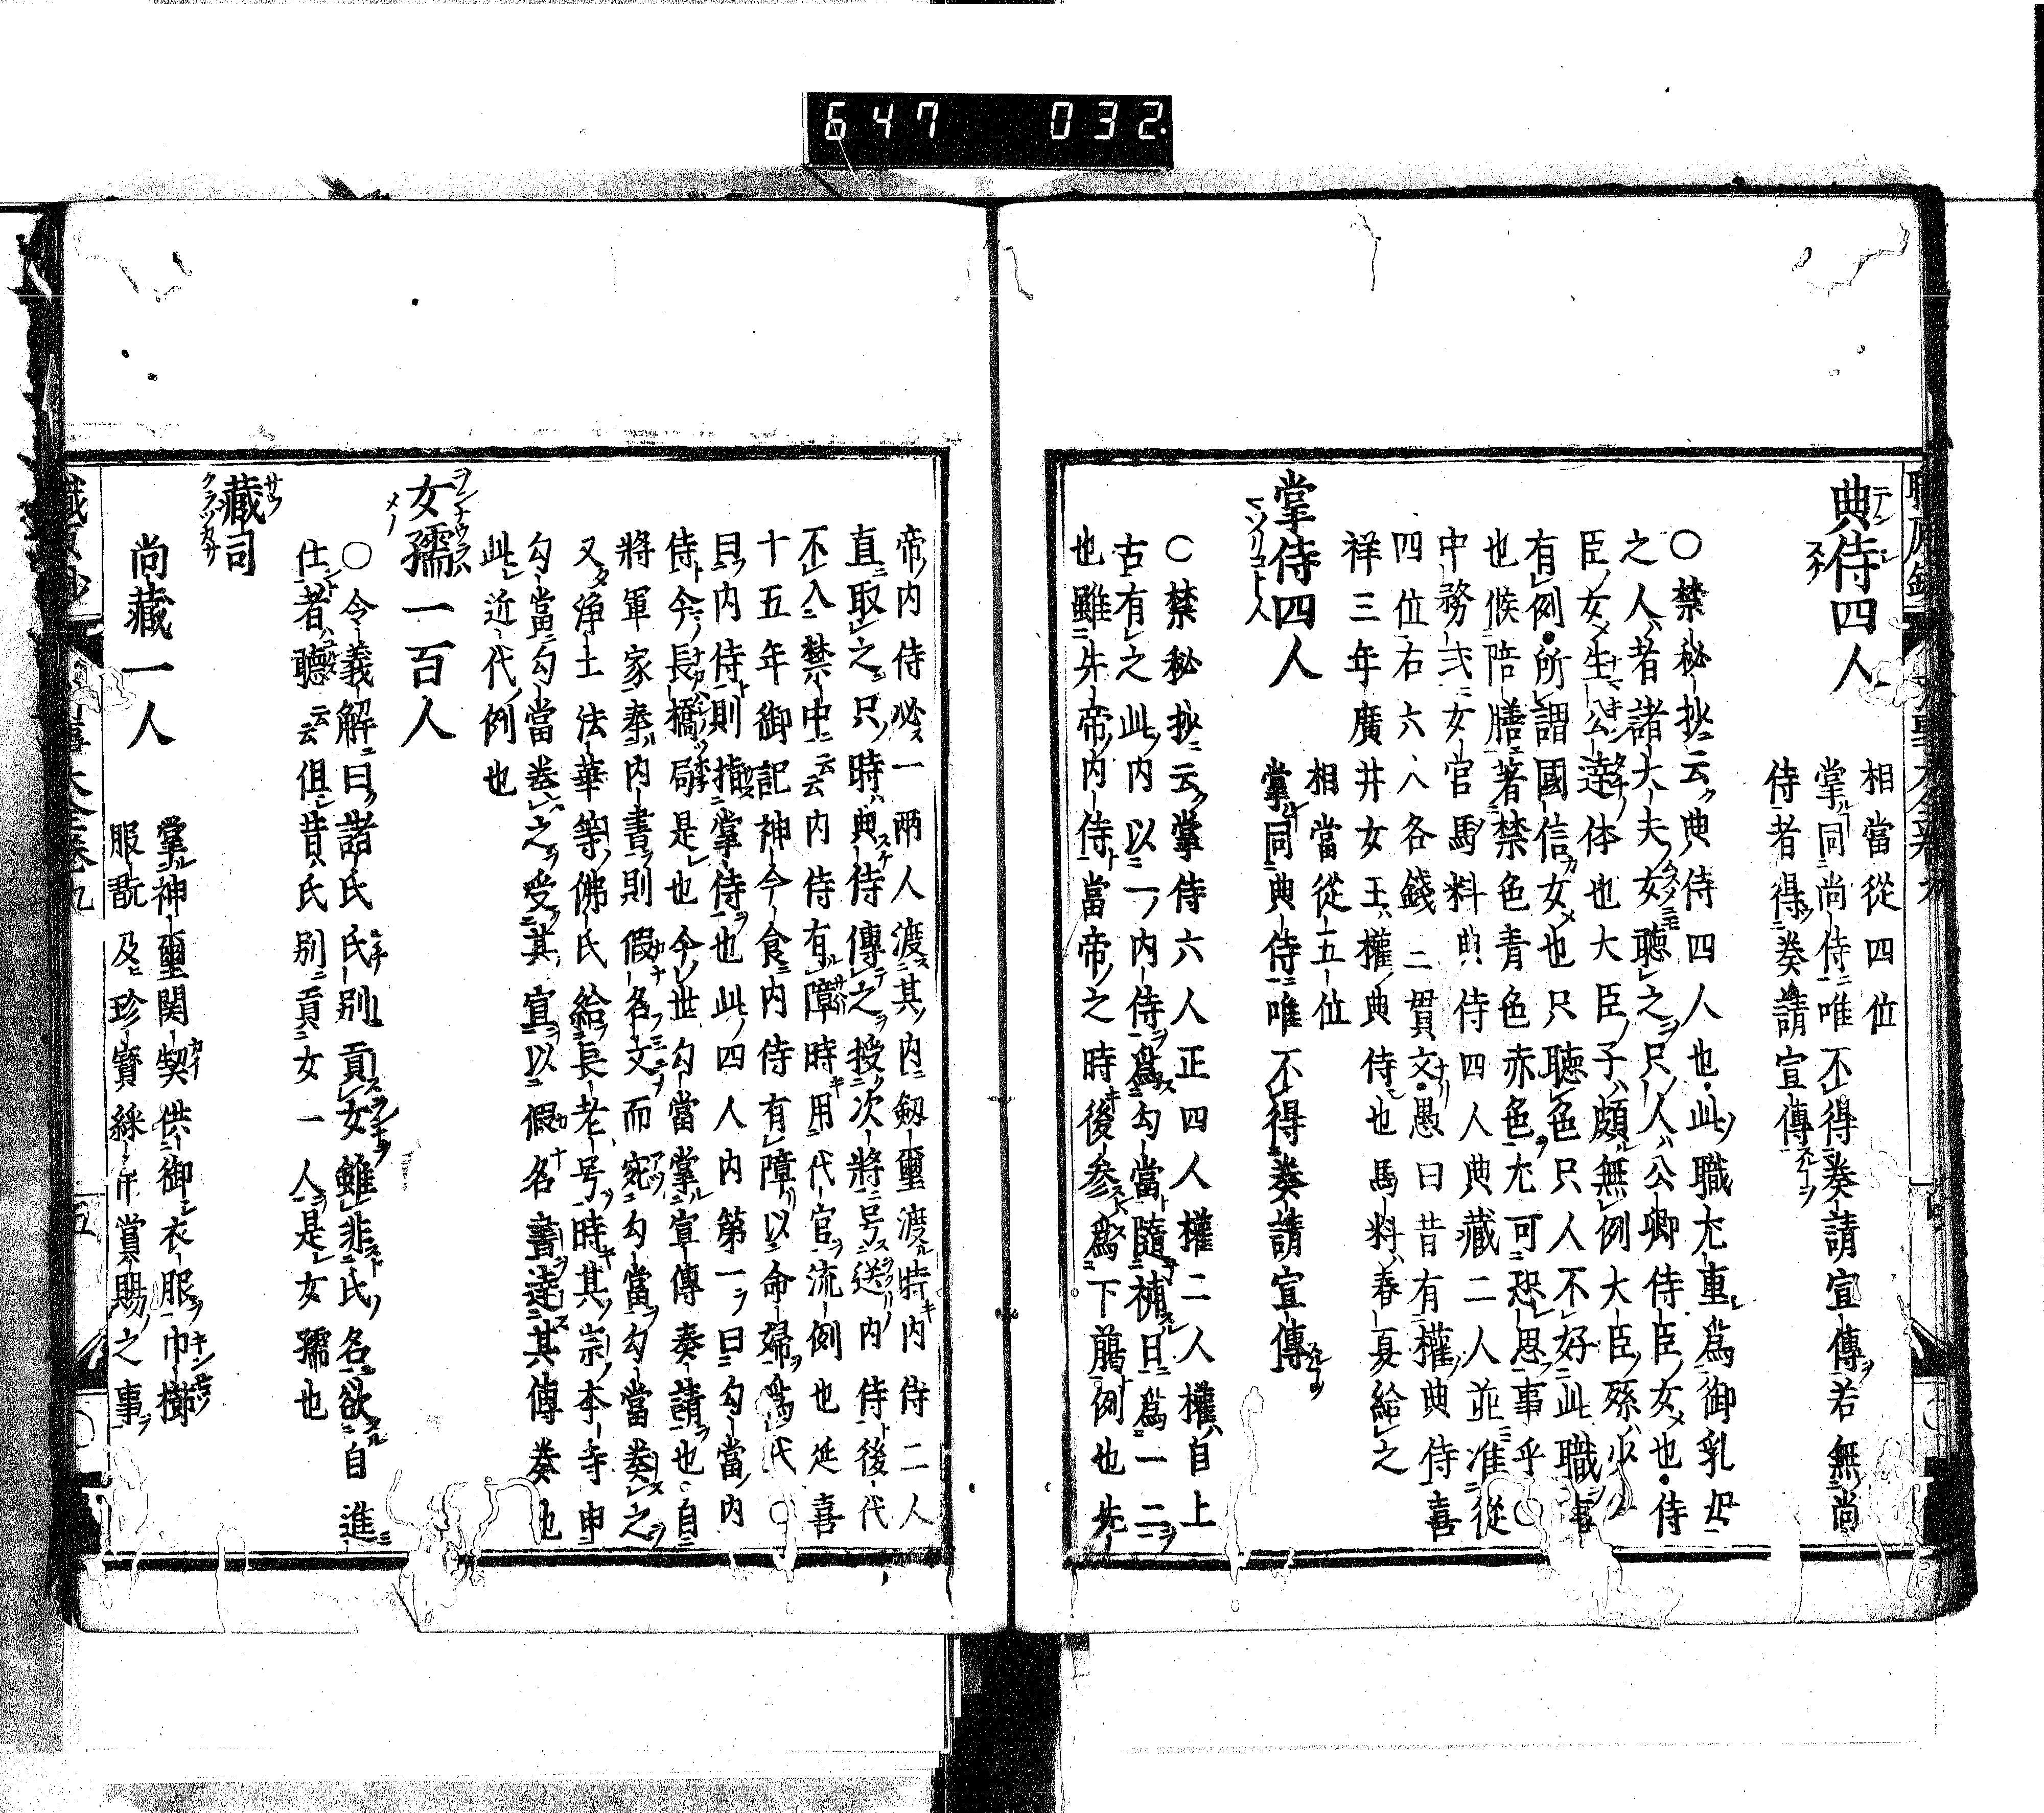 647 032
典侍四人
相當從四位
掌同尚侍唯不得奏請宣傳若無尚
侍者得奏請宣傳
○禁秘抄云典侍四人也此職尤重爲御乳母
之人者諸大夫女聽之只人公卿侍臣女也侍
臣女生公達体也大臣子頗無例大臣孫少々
有例所謂國信女也只聽色只人不好此職事
也候陪膳著禁色青色赤色尤可恐思事乎○
中務式女官馬料典侍四人典藏二人並准從
四位右六八各錢二貫文愚曰昔有權典侍喜
祥三年廣井女王權典侍也馬料春夏給之
掌侍四人
相當從五位
掌同典侍唯不得奏請宣傳
○禁秘抄云掌侍六人正四人權二人權自上
古有之此内以一内侍爲勾當隨補日爲一二
也雖先帝内侍當帝之時後参爲下﨟例也先
帝内侍必一兩人渡其内劔璽渡時内侍二人
直取之只時典侍傳之授次將号送内侍後代
不入禁中云云内侍有障時用代官流例也延喜
十五年御記神今食内侍有障以命婦爲代○
曰内侍則指掌侍也此四人内第一曰勾當内
侍今長橋局是也今世勾當掌宣傳奏請也自
將軍家奉内書則假名文而宛勾當勾當奏之
又浄土法華等佛氏給長老号時其崇本寺申
勾當勾當奏之受其宣以假名書達其傳奏也
此近代例也
女孺一百人
○令義解曰諸氏氏別貢女雖非氏名欲自進
仕者聽云云但昔氏別貢女一人是女孺也
藏司
尚藏一人
掌神璽関契供御衣服巾櫛
服翫及珍寳綵帛賞賜之事